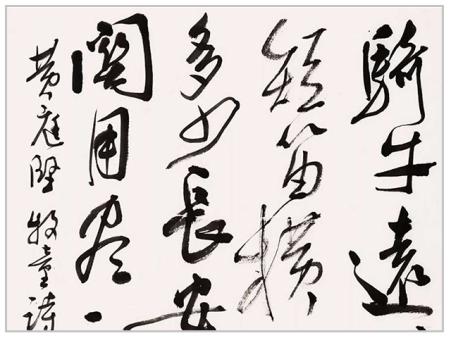 騎牛遠
短笛横
多少長安
関用尽
黄庭堅牧童詩